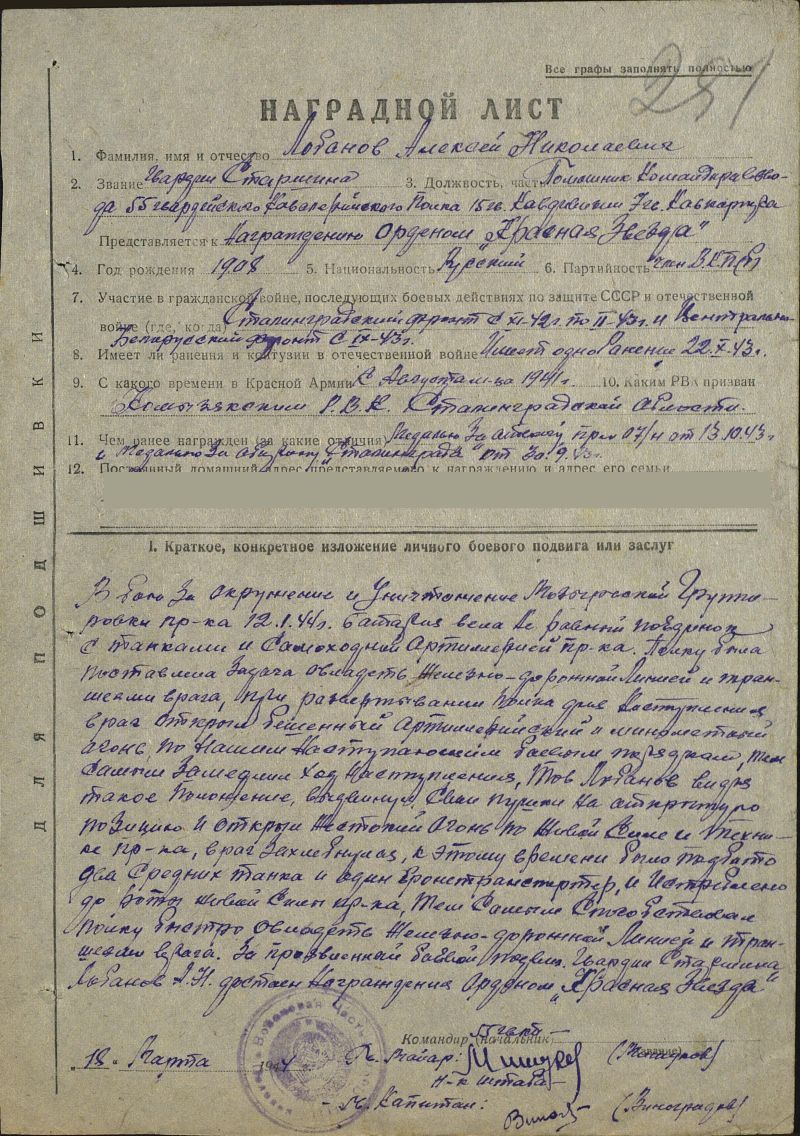 Все графы заполнять полностью
251
НАГРАДНОЙ ЛИСТ
1. Фамилия, имя и отчество Лобанов Алексей Николаевич
2. Звание Гвардии Старшина 3. Должность, часть Помошник Командира взво-
да 55 гвардейского Кавалерийского Полка 15 гв. Кавдивизии 7 гв. Кавкорпуса
Представляется к Награждению Орденом „Красная Звезда"
4. Год рождения 1908 5. Национальность Русский 6. Партийность член ВКП(б)
7. Участие в гражданской войне, последующих боевых действиях по защите СССР и отечественной
войне (где, когда) Сталинградский фронт с XI-42г. по II-43г. и Центрально-
Белорусский фронт с IX-43г.
8. Имеет ли ранения и контузии в отечественной войне Имеет одно Ранение 22.X.43г.
9. С какого времени в Красной Армии С Августа м-ца 1941г. 10. Каким РВК призван
Р.В.К. Сталинградской области.
11. Чем ранее награжден (за какие отличия) Медалью За Отвагу пр-м 07/н от 13.10.43г
и Медалью За оборону „Сталинграда" от
12. Постоянный домашний адрес представляемого к награждению и адрес его семьи
I. Краткое, конкретное изложение личного боевого подвига или заслуг
В бою За окружение и Уничтожение Группи-
ровки пр-ка 12.1.44г. батарея вела Не равный поединок
с танками и Самоходной Артиллерией пр-ка. Полку была
поставлена Задача овладеть Железно-дорожной Линией и тран-
шеями врага, при развертывании Полка для Наступления
враг открыл бешенный Артиллерийский и минометный
огонь, по Нашим Наступающим боевым порядкам, тем
Самым Замедлил ход Наступления, Тов Лобанов видя
такое Положение, выдвинул Свои пушки На открытую
позицию и открыл Жестокий Огонь по Живой Силе и Техни-
ке пр-ка, враг Захлебнулся, к этому времени было подбито
два Средних танка и один бронетранспортер, и Истреблено
до роты живой Силы пр-ка, тем Самым Способствовал
полку быстро овладеть Железно-дорожной Линией и тран-
шеями врага. За проявленный боевой подвиг. Гвардии Старшина
Лобанов А.Н. достоин Награждения Орденом „Красная Звезда"
Командир (начальник) 55 гвкп
18 Марта 1944 Гв. Майор: (звание)
Н-к штаба
Гв. Капитан: (Виноградов)
ДЛЯ ПОДШИВКИ